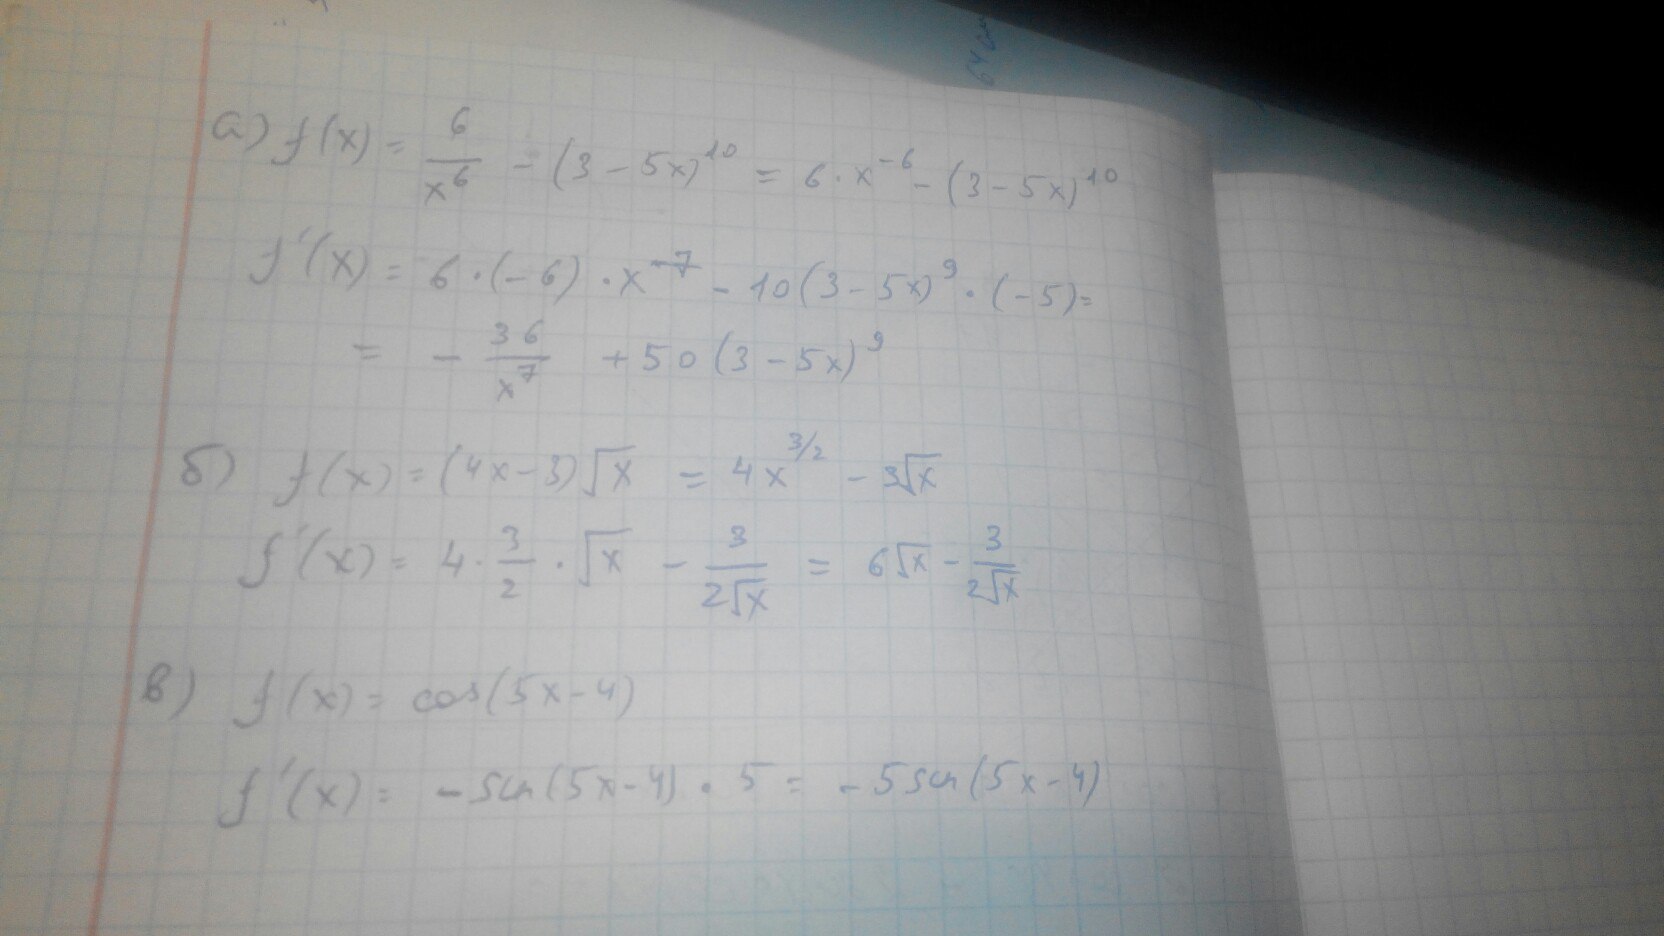 а) f(x) = 6/x⁶ - (3 - 5x)¹⁰ = 6 · x⁻⁶ - (3 - 5x)¹⁰
f'(x) = 6 · (-6) · x⁻⁷ - 10(3 - 5x)⁹ · (-5) =
= - 36/x⁷ + 50(3 - 5x)⁹
б) f(x) = (4x - 3)√x = 4x^(3/2) - 3√x
f'(x) = 4 · 3/2 · √x - 3/(2√x) = 6√x - 3/(2√x)
в) f(x) = cos(5x - 4)
f'(x) = -sin(5x - 4) · 5 = -5sin(5x - 4)